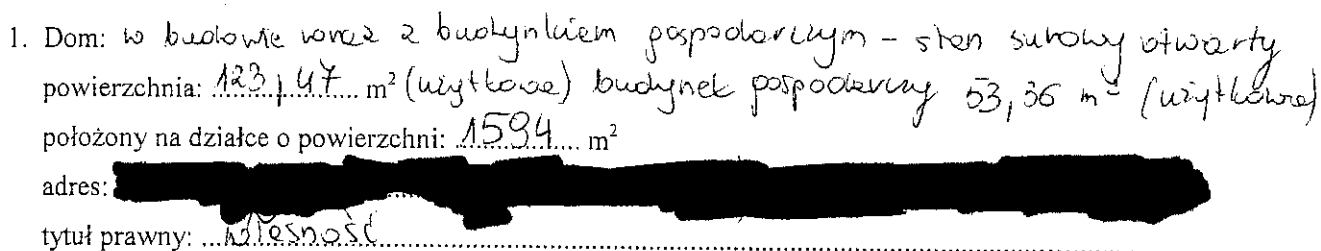 1. Dom: w budowie wraz z budynkiem gospodarczym - stan surowy otwarty
powierzchnia: 123,47 m² (użytkowa) budynek gospodarczy 53,36 m² (użytkowa)
położony na działce o powierzchni: 1594 m²
adres:
tytuł prawny: własność